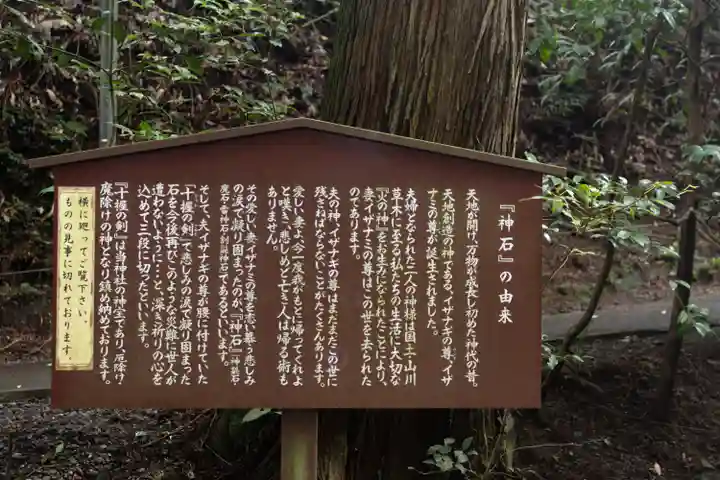 『神石』の由来
天地が開け、万物が成長し初めた神代の昔。
天地創造の神である、イザナギの尊、イザ
ナミの尊が誕生されました。
夫婦となられた二人の神様は国土・山川
草木に至る私たちの生活に大切な
『火の神』をお生みになられたことにより、
妻、イザナミの尊はこの世を去られた
のであります。
夫の神、イザナギの尊はまだまだこの世に
残さねばならないことがたくさんあります。
愛しい妻よ今一度我がもとに帰ってくれよ
と嘆き、悲しめど亡き人は帰る術も
ありません。
その愛しい妻、イザナミの尊を恋い慕う悲しみ
の涙で凝り固まったのが『神石』
であるといいます。
そして、夫イザナギの尊が腰に付けていた
『十握の剣』で悲しみの涙で凝り固まった
石を今後再びこのような災難に世人が
遭わないように・・・と、深い祈りの心を
込めて三段に切ったといいます。
『十握の剣』は当神社の神宝であり、厄除け・
魔除けの神となり鎮め納めております。
横に廻ってご覧下さい。
ものの見事に切れております。